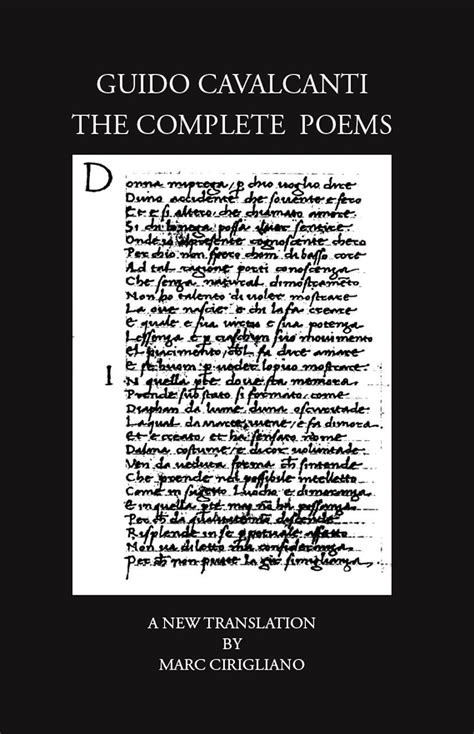 GUIDO CAVALCANTI
THE COMPLETE POEMS
Donna miprega, p chio voglio dire
Duno accidente che sovente e fero
Et e si altero che chiamato amore
Si chi possa sentire
Onde cognoscente chero
Perchio non spero chom di basso core
Ad tal ragione porti conoscenza
Che senza natural dimostrameto
Non ho talento di voler mostrare
La ove nascie e chi la fa creare
E quale e sua virtu e sua potenza
Lessenza e p ciaschun suo movimento
El piacimento, fa dire amare
E se huom p veder lopuo mostrare
IN quella pte dove sta memora
Prende suo stato si formato, come
Diaphan da lume duna oscuritade
Laqual da marte viene, e fa dimora
Et e creato, et ha sensato nome
Dalma costume, e di cor voluntade
Ven da veduta forma ch sintende
Che prende nel possibile intelletto
Come in sugetto luocho e dimoranza
E in quella pte possanza
Per ch da descende
Risplende in se ppetuale effetto
Non ha diletto ma consideranza
Per ch non puote la gir simiglianza
A NEW TRANSLATION
BY
MARC CIRIGLIANO